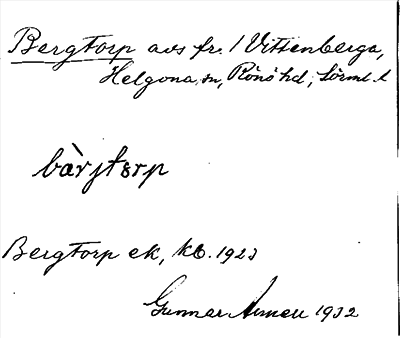 Bergtorp avs fr. 1 Vittenberga,
Helgona sn, Rönö hd, Sörml. l
bàrjtɷrp
Bergtorp ek, kb. 1923
Gunnar 1932